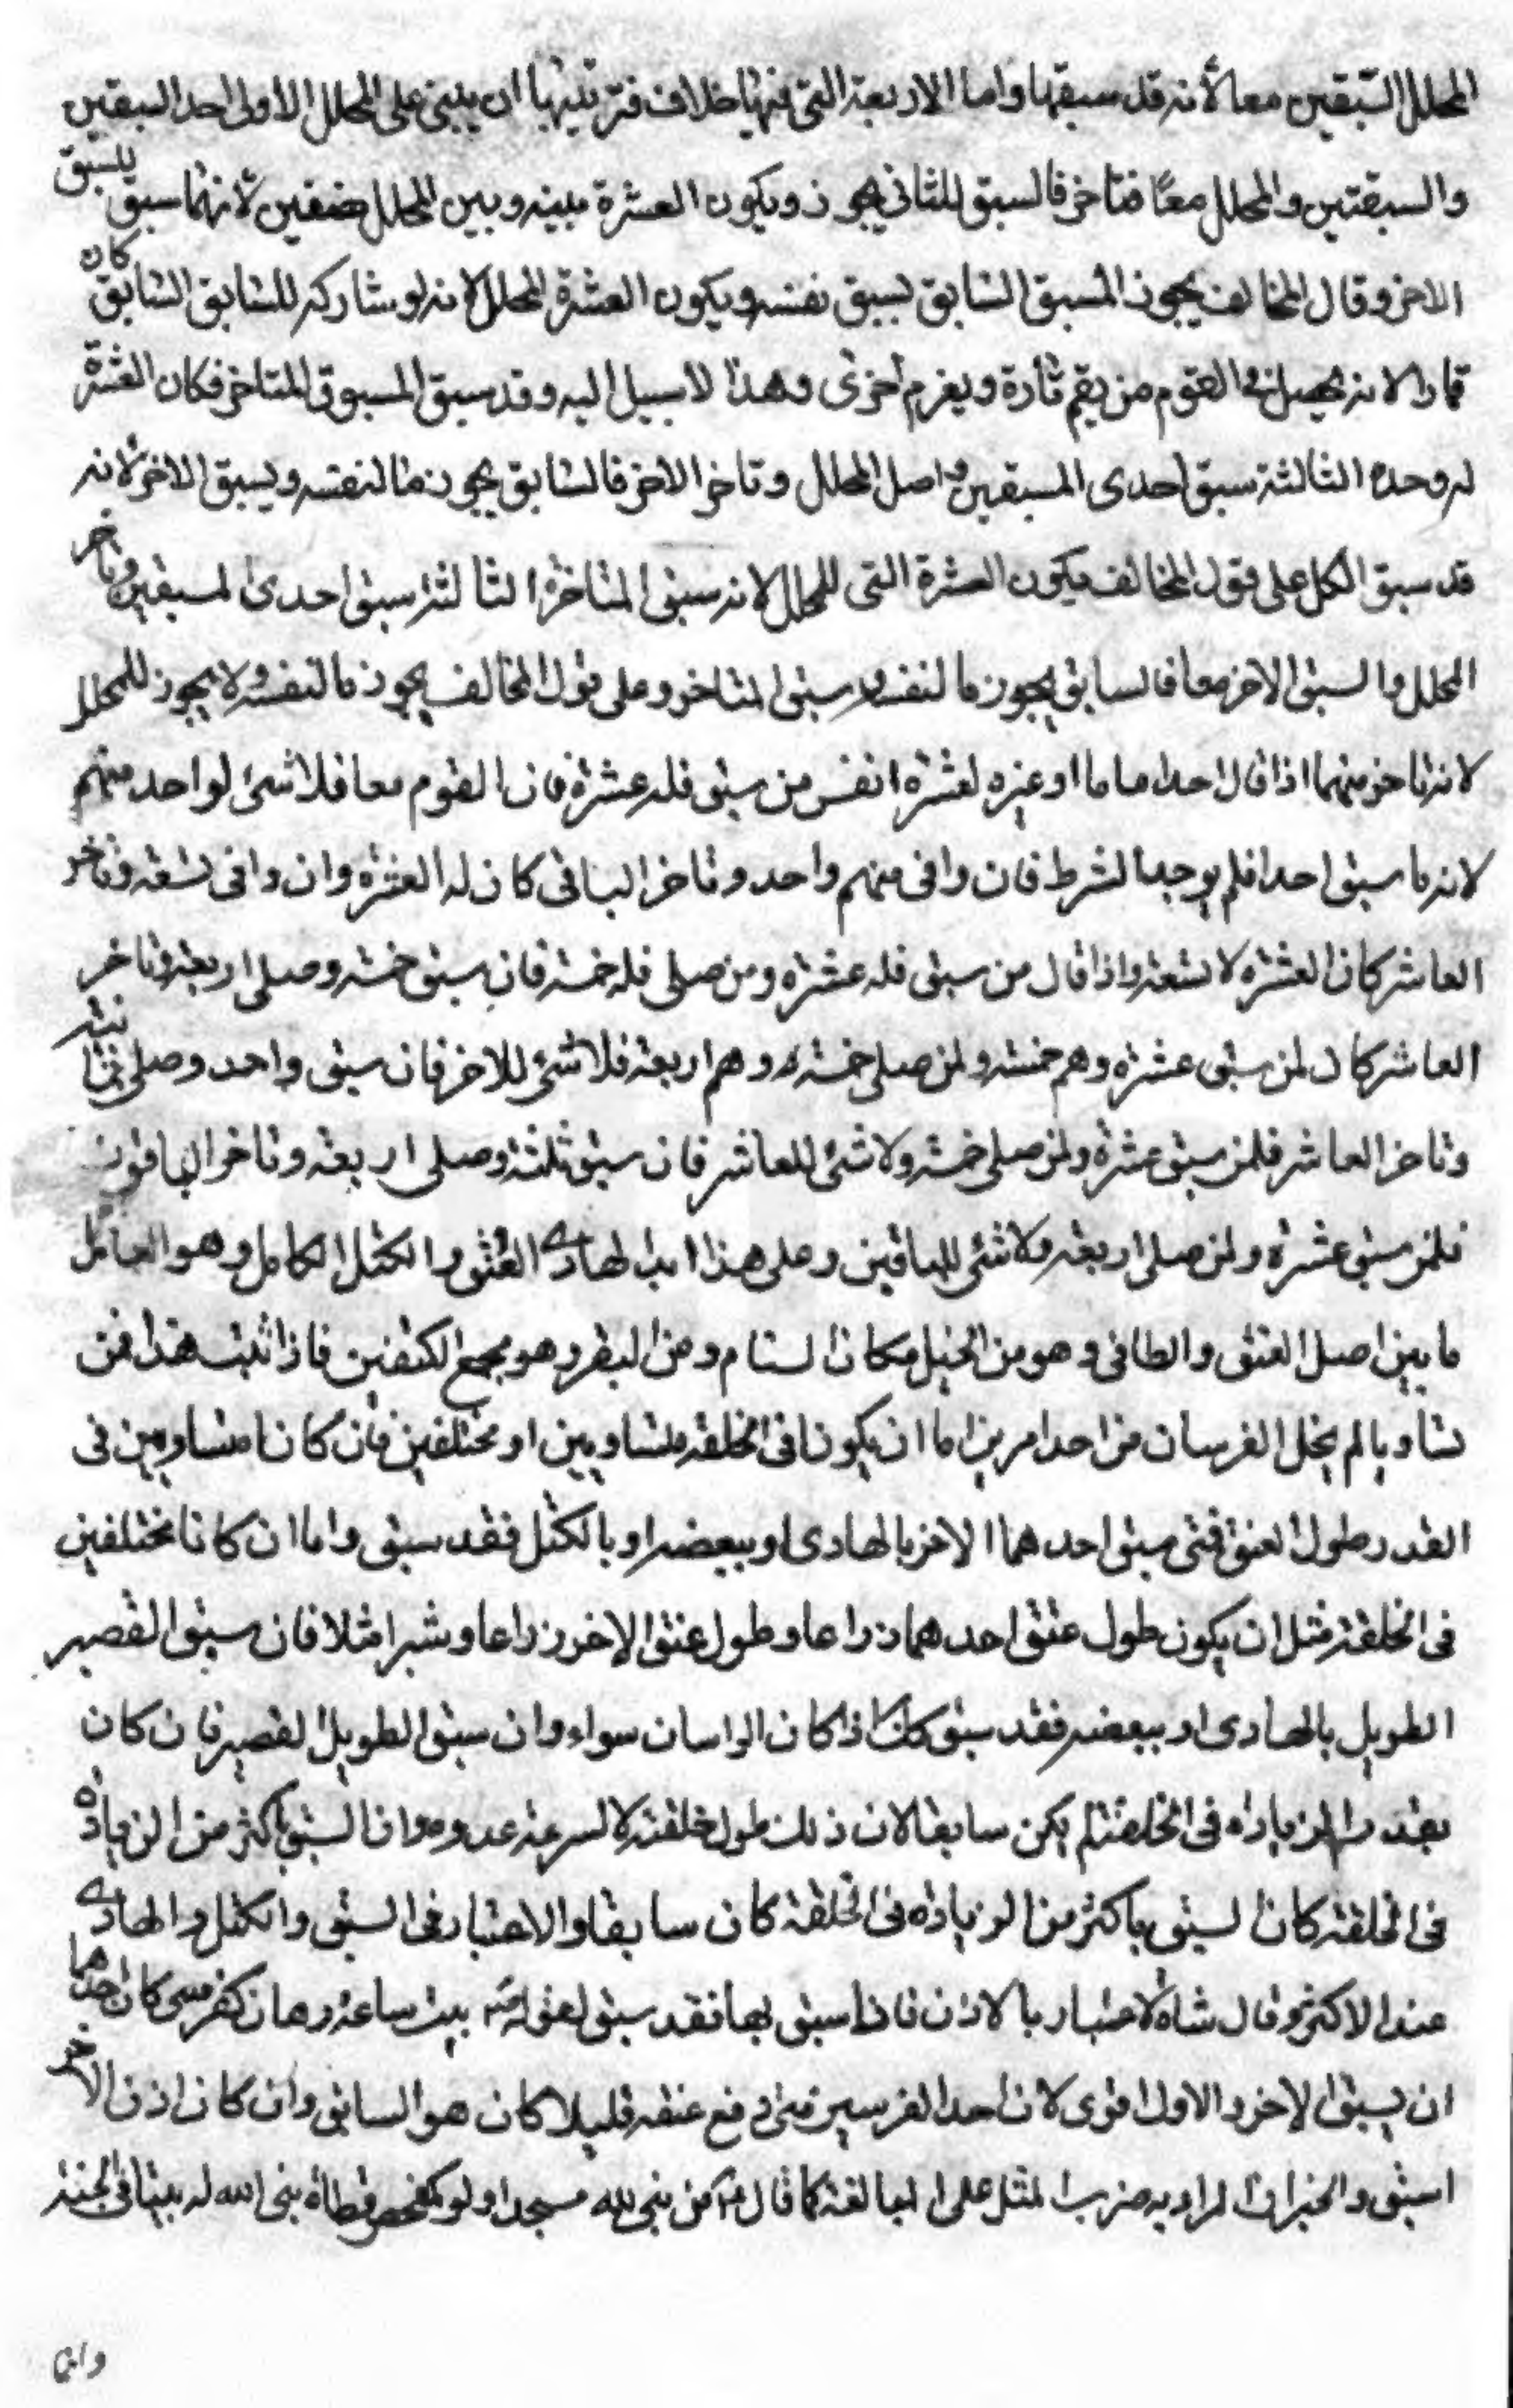 المحلل السبقين معا لأنه قد سبقهما واما الاربعة التى فيها خلاف فترتيبها ان يبنى على المحلل الاولى احد السبقين
والسبقتين والمحلل معًا فتاخر فالسبق للثانى يجوز ويكون العشرة بينه وبين المحلل نصفين لأنهما سبق يسبق
الاخر وقال المخالف يجوز المسبق السابق بسبق نفسه ويكون العشرة المحلل لانه لو شاركه للسابق السابق كان
قمارا لانه يحصل فى القوم من يقم تارة ويغرم أخرى وهذا لا سبيل اليه وقد سبق المسبوق المتاخر فكان العشرة
له وحده الثالثة سبق احدى المسبقين واصل المحلل وتاخر الاخر فالسابق يجوز مالنفسه ويسبق الاخر لأنه
قد سبق الكل على قول المخالف يكون العشرة التى للمحلل لانه سبق المتاخرة الثالثة سبق احدى لمسبقين وتاخر
المحلل والسبق الاخر معا فالسابق يجوز ما لنفسه وسبق المتاخر وعلى قول المخالف يجوز مالنفسه ولا يجوز للمحلل
لانه تاخر منهما اذا قال احد اماما او غيره لعشرة انفس من سبق فله عشرة فان القوم معا فلا شئ لواحد منهم
لانه ما سبق احدا فلم يوجد الشرط فان وافى منهم واحد وتاخر الباقى كان له العشرة وان وافى تسعة وتاخر
العاشر كان العشرة لا تسعة واذا قال من سبق فله عشرة ومن صلى فله خمسة فان سبق خمسة وصلى اربعة وتاخر
العاشر كان لمن سبق عشرة وهم خمسة ولمن صلى خمسة وهم اربعة فلا شئ للاخر فان سبق واحد وصلى ثمانية
وتاخر العاشر فلمن سبق عشرة ولمن صلى خمسة ولا شئ للعاشر فان سبق ثلثة وصلى اربعة وتاخر الباقون
فلمن سبق عشرة ولمن صلى اربعة ولا شئ للباقين وعلى هذا ابدا لهادى العنق والكتل الكامل وهو العامل
ما بين اصل العنق والطافى وهو من الخيل مكان السنام ومن البقر وهو مجمع الكتفين فاذا ثبت هذا فمن
تساويا لم يخل الفرسان من احد امرين اما ان يكونا فى الخلقة متساويين او مختلفين فان كانا متساويين فى
القدر طول العنق فمتى سبق احدهما الاخر بالهادى او ببعضه او بالكتل فقد سبق واما ان كانا مختلفين
فى الخلقة مثل ان يكون طول عنق احدهما ذراعا وطول عنق الاخر ذراعا وشبرا مثلا فان سبق القصير
الطويل بالهادى او ببعضه فقد سبق كك اذا كان الراسان سواء وان سبق الطويل القصير فان كان
بقدر الزيادة فى الخلقة لم يكن سابقا لان ذلك طول خلقته لا لسرعة عدوه وان السبق باكثر من الزيادة
فى الخلقة كان السبق باكثر من الزيادة فى الخلقة كان سابقا والاعتبار فى السبق والكتل والهادى
عند الاكثر وقال شاذ الاعتبار بالاذن فاذا سبق بها فقد سبق لقوله بعثت والساعة كفرسى رهان كان احدهما
ان يسبق الاخر والاول اقوى لان احد الفرسين متى رفع عنقه قليلا كان هو السابق وان كان اذن الاخر
اسبق والخبر ان المراد به ضرب المثل على المبالغة كما قال من بنى لله مسجدا ولو كمفحص قطاة بنى الله له بيتا فى الجنة
وانما